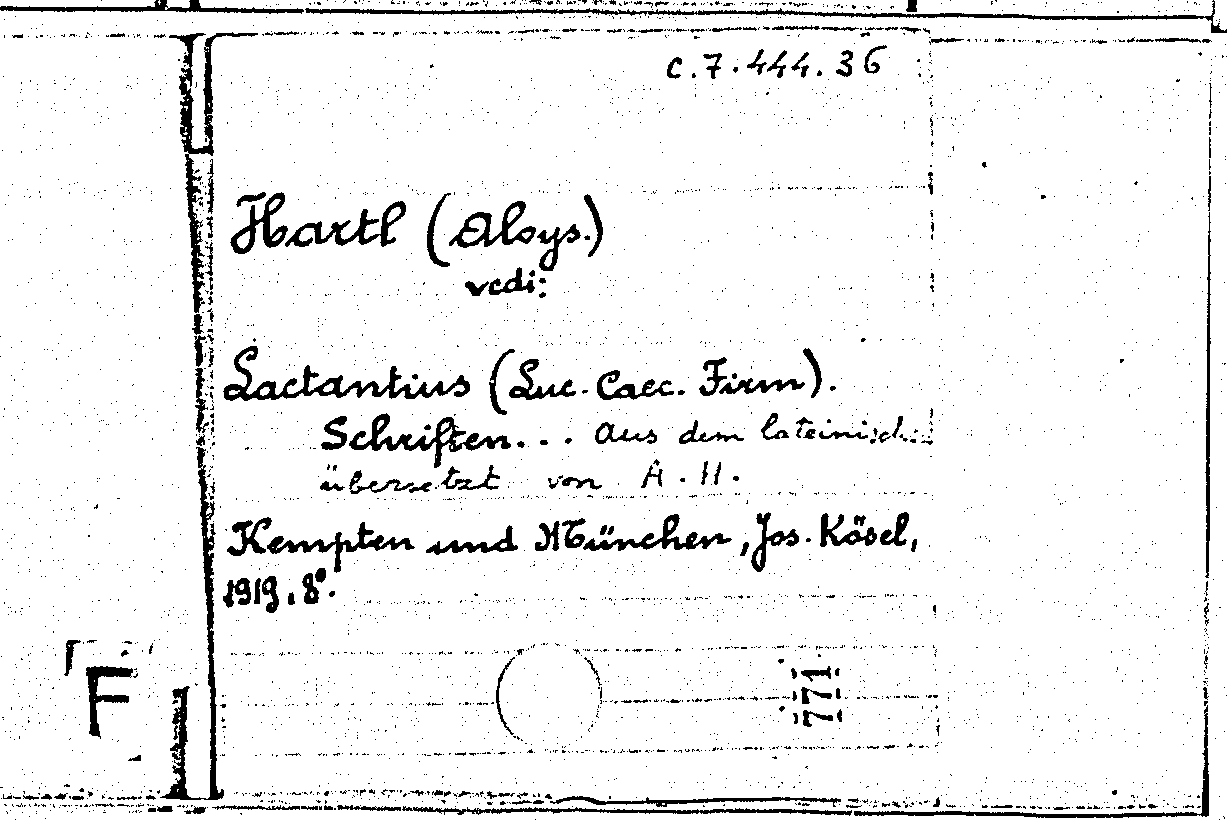 C.7.444.36
Hartl (Aloys.)
vedi:
Lactantius (Luc. Caec. Firm).
Schriften... aus dem lateinischen
übersetzt von A.H.
Kempten und München, Jos. Kösel,
1919. 8°.
F
771